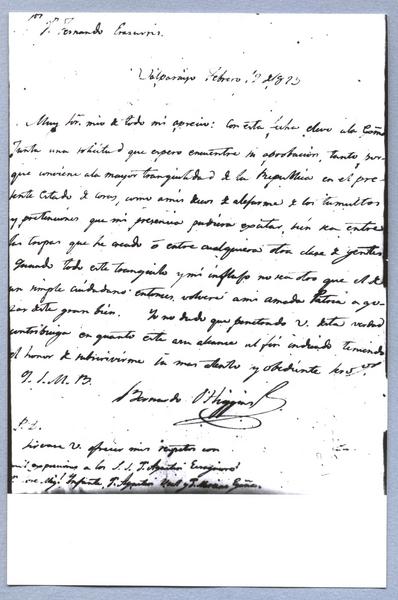 Sr. Fernando Errazuriz.
Valparaiso Febrero 12 de 1823
Muy Sor. mio de todo mi aprecio: Con esta fecha elevo a la Exma
Junta una solicitud que espero encuentre su aprobacion, tanto por-
que conviene ala mayor tranquilidad de la Republica en el pre-
sente Estado de cosas, como a mis deseos de alejarme de los tumultos
y pretenciones que mi presencia pudiera excitar, bien sea entre
las tropas que he creado ó entre cualquiera otra clase de gentes.
Quando todo esté tranquilo y mi influxo no sea otro que el de
un simple ciudadano entonces volveré a mi amada Patria a go-
zar de este gran bien. Yo no dudo que penetrado V. de esta verdad
contribuiga en quanto esté a su alcance al fin indicado teniendo
el honor de subscrivirme su mas atento y obediente
Q. S. M. B.
Bernardo O'Higgins
P. D.
Sirvase V. ofrecer mis respetos con
mis expresiones a los S. S. D. Agustin Eyzaguirre
Infante, D. Agustin y D.